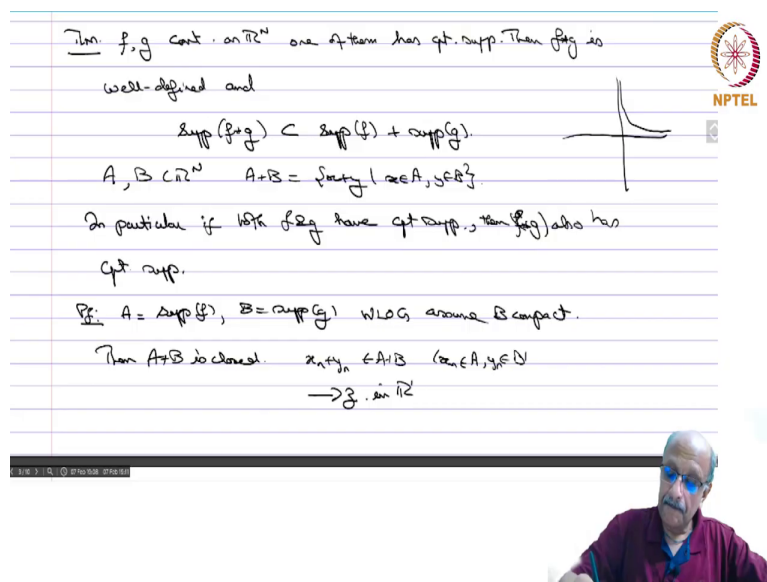 Thm. f, g cont. on ℝᴺ one of them has cpt. supp. Then f*g is
well-defined and
supp (f*g) ⊂ supp(f) + supp(g).
A, B ⊂ ℝᴺ A+B = {x+y | x∈A, y∈B}.
In particular if both f & g have cpt supp., then (f*g) also has
cpt supp.
Pf: A = supp(f), B = supp(g) WLOG assume B compact.
Then A+B is closed. xₙ+yₙ ∈ A+B (xₙ∈A, yₙ∈B)
→ z in ℝ
NPTEL